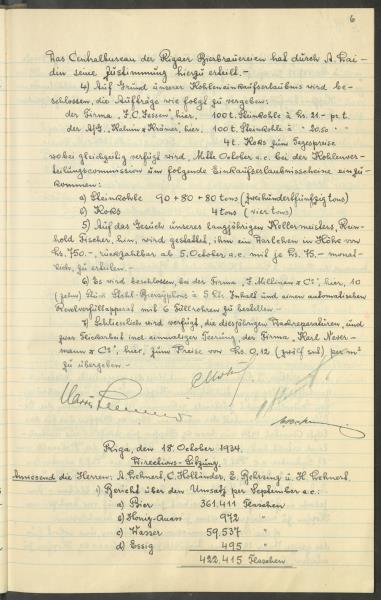 6
Das Centralbureau der Rigaer Bierbrauereien hat durch A.
seine Zustimmung hierzu erteilt.-
4) Auf Grund unserer Kohleneinkaufserlaubnis wird be-
schlossen, die Aufträge wie folgt zu vergeben:
der Firma J.C. Jessen, hier, 100 t. Steinkohle à Ls. 21.- pr. t.
der A/G. Kalnin & Krämer, hier, 100 t. Steinkohle à " 20.50 "
4 t. Koks zum Tagespreise
wobei gleichzeitig verfügt wird, Mitte October a.c. bei der Kohlenver-
teilungscommission um folgende Einkaufserlaubnisscheine einzu-
kommen:
a) Steinkohle 90 + 80 + 80 tons (zweihundertfünfzig tons)
b) Koks 4 tons (vier tons)
5) Auf das Gesuch unseres langjährigen Kellermeisters, Rein-
hold Fischer, hier, wird gestattet, ihm ein Darlehen in Höhe von
Ls. 750.-, rückzahlbar ab 5. October a.c. mit je Ls. 75.- monat-
lich, zu erteilen.-
6) Es wird beschlossen, bei der Firma J. & Co, hier, 10
(zehn) Stück Stahl- à 5 Ltr. Inhalt und einen automatischen
mit 6 Füllrohren zu bestellen.-
7) Schliesslich wird verfügt, die diesjährigen Dachreparaturen, und
zwar Flickarbeit incl. einmaliger Teerung, der Firma Karl
& Co, hier, zum Preise von Ls. 0,12 (zwölf snt) per m²
zu übergeben.-
Riga, den 18. October 1934.
Directions-Sitzung.
Anwesend die Herren: A. Lehnert, C. Holländer, E. Behrsing u. H. Lehnert.
1) Bericht über den Umsatz per September a.c.:
a) Bier 361.411 Flaschen
b) Honig-Quass 972 "
c) Wasser 59.537 "
d) Essig 495 "
422.415 Flaschen